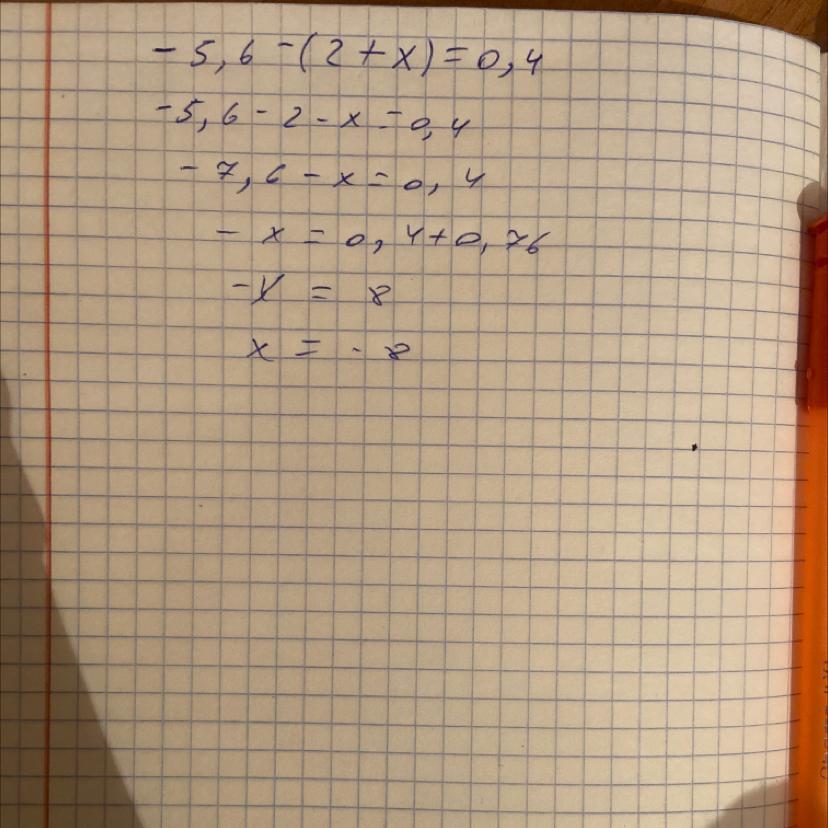 -5,6-(2+x)=0,4
-5,6-2-x=0,4
-7,6-x=0,4
-x=0,4+0,76
-x=8
x=-8